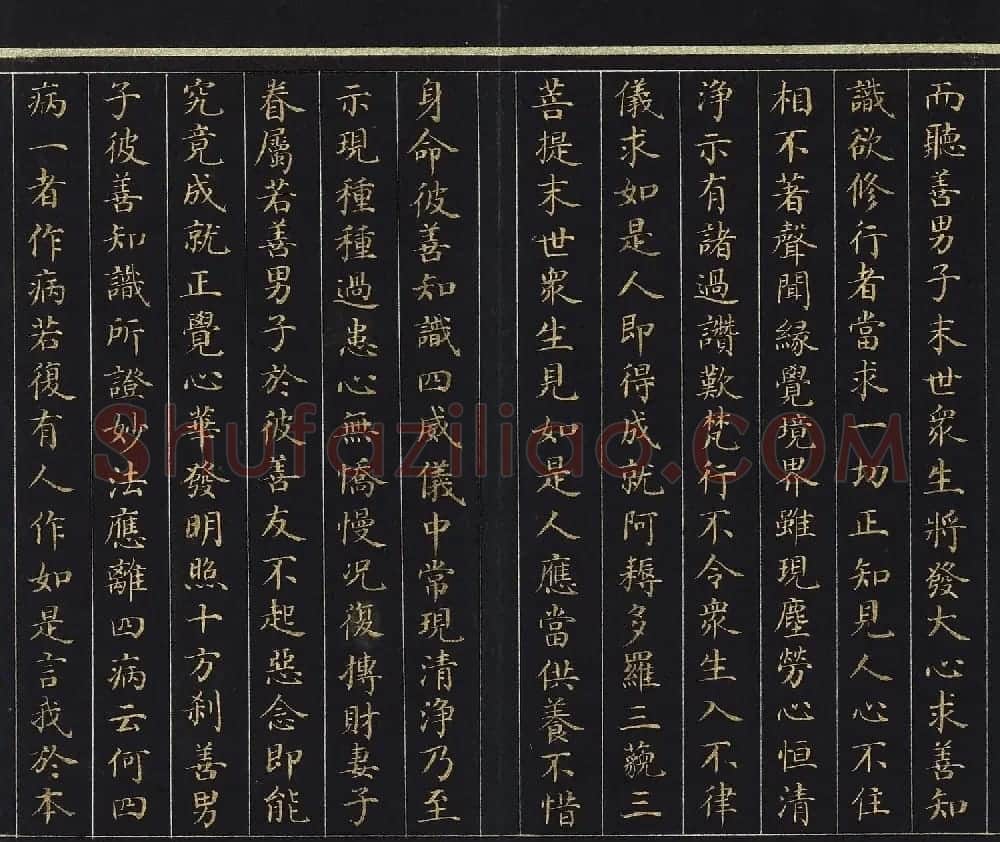 而聽善男子末世衆生將發大心求善知
識欲修行者當求一切正知見人心不住
相不著聲聞緣覺境界雖現塵勞心恒清
淨示有諸過讚歎梵行不令衆生入不律
儀求如是人即得成就阿耨多羅三藐三
菩提末世衆生見如是人應當供養不惜
身命彼善知識四威儀中常現清淨乃至
示現種種過患心無憍慢况復摶財妻子
眷屬若善男子於彼善友不起惡念即能
究竟成就正覺心華發明照十方刹善男
子彼善知識所證妙法應離四病云何四
病一者作病若復有人作如是言我於本
Shufaziliao.COM